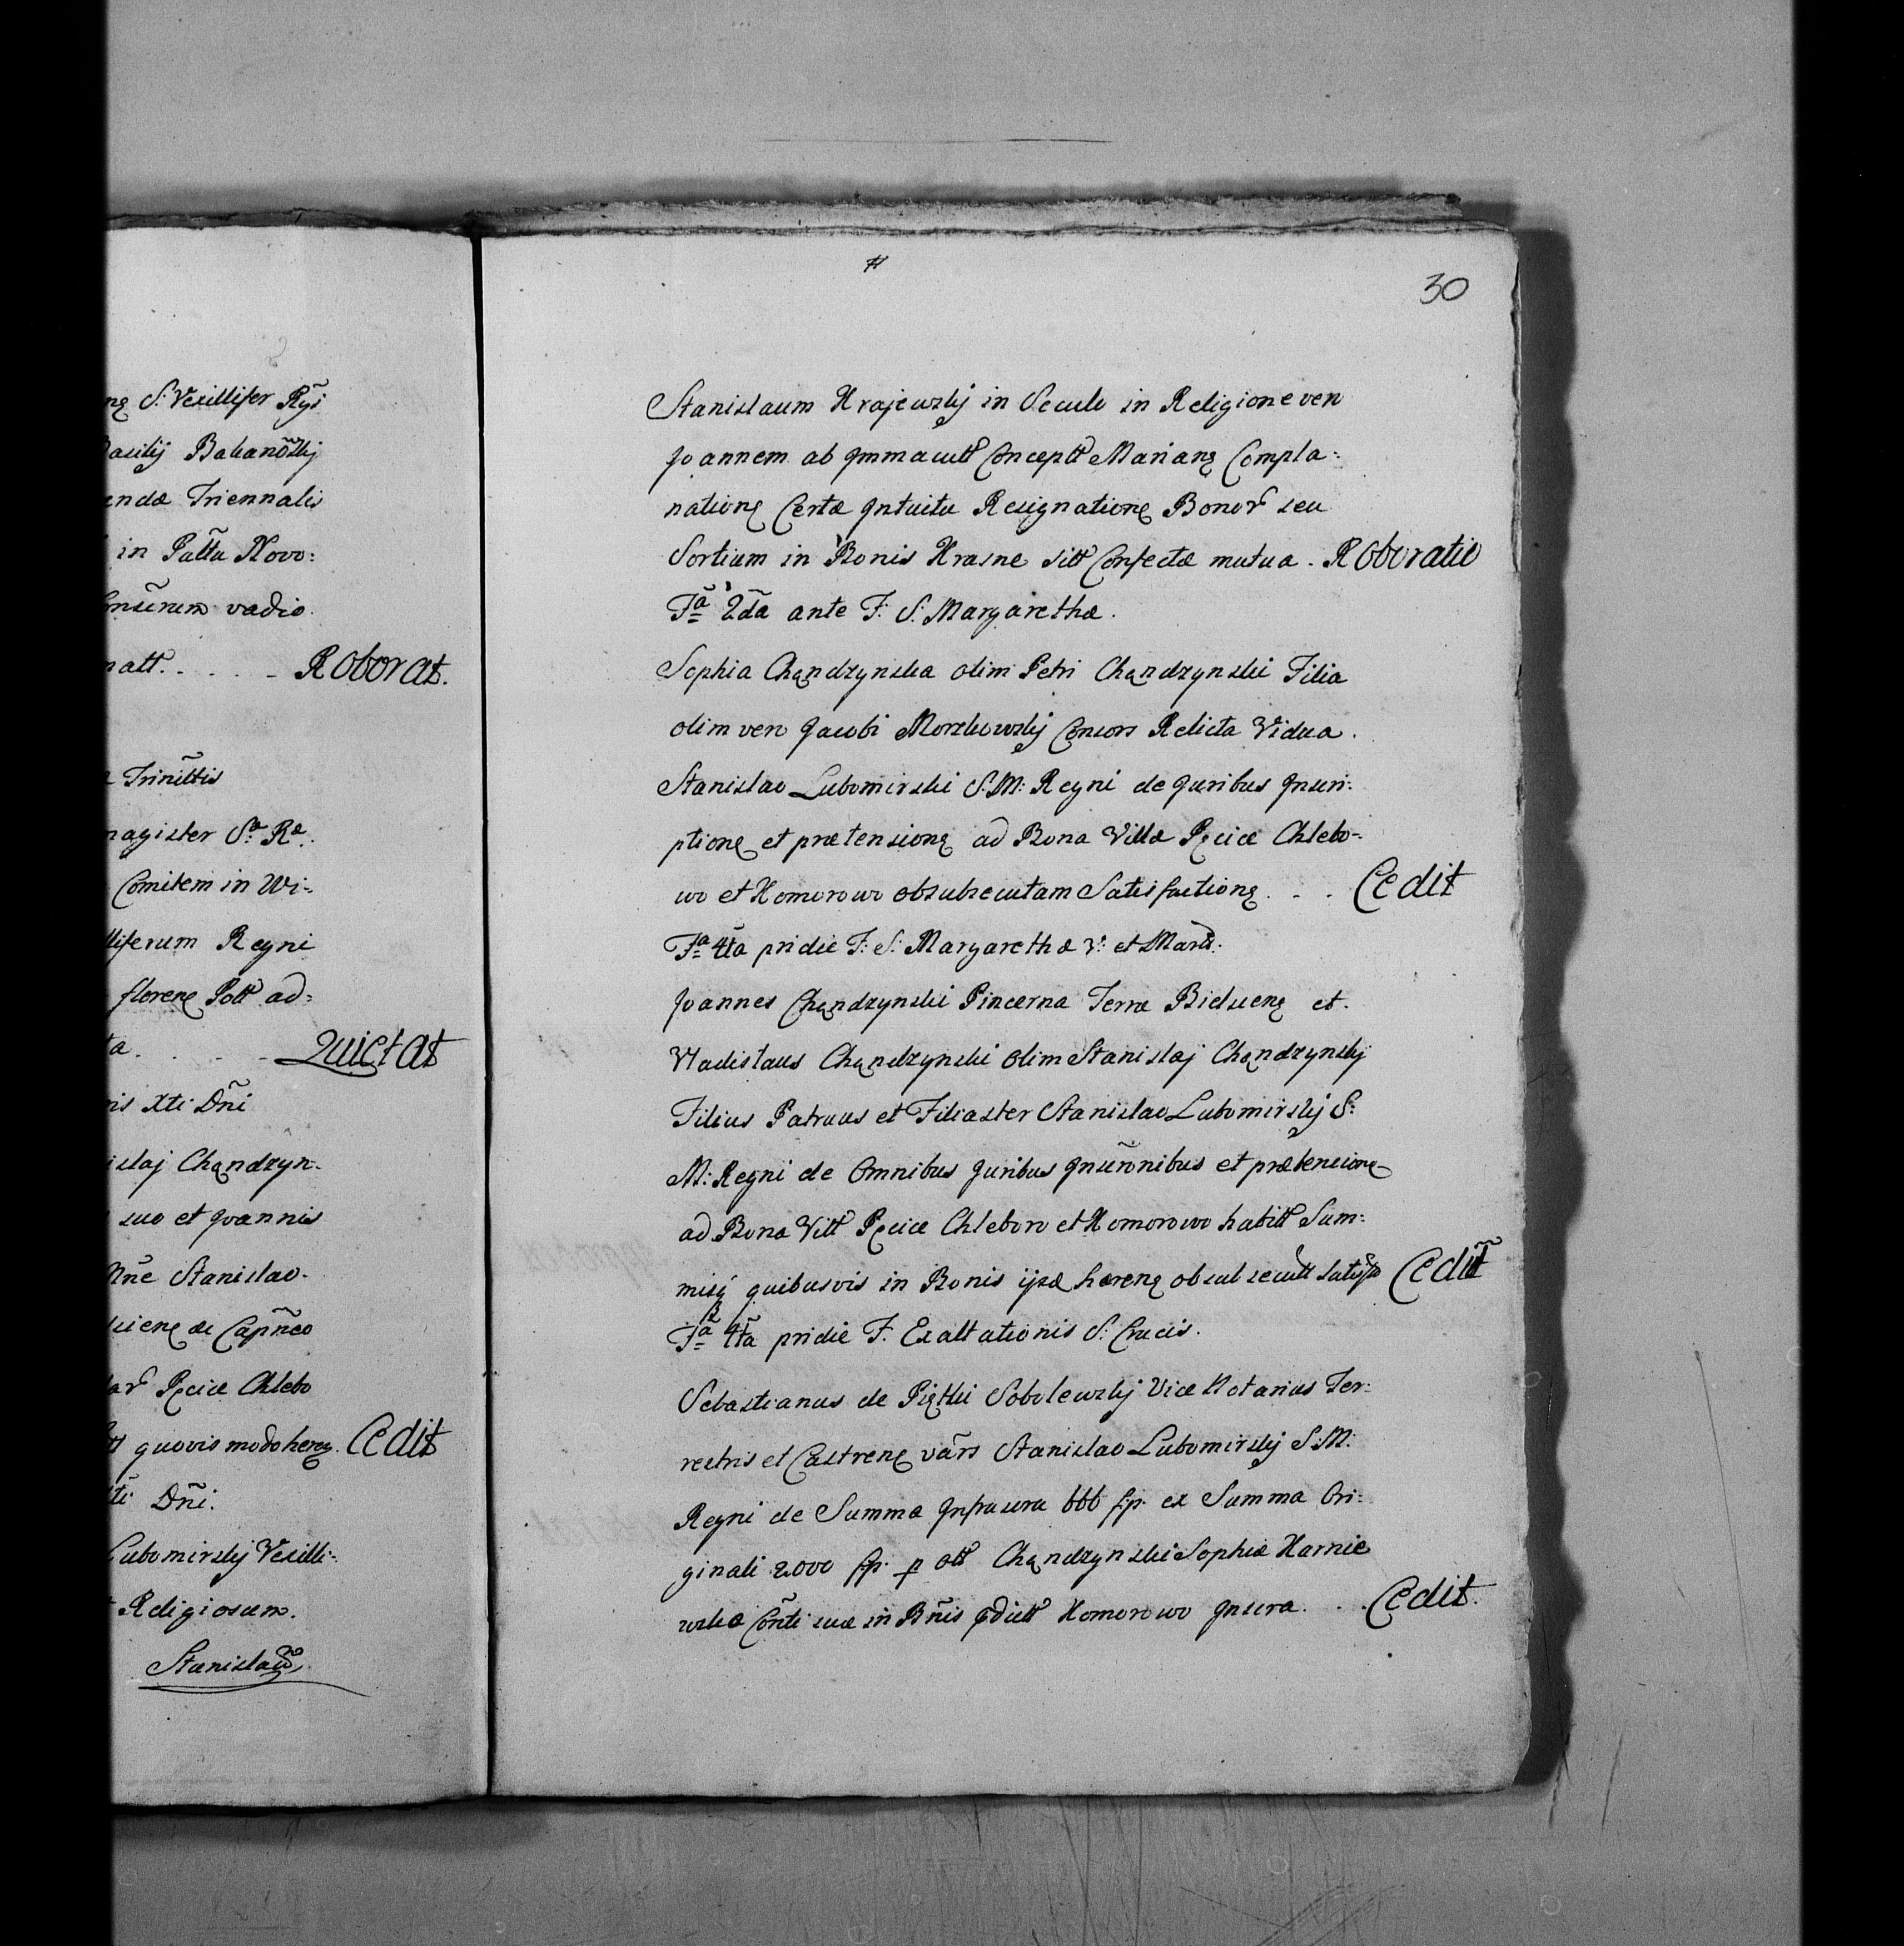 S: Vexillifer Rg̃i
Bakanõskj
Triennalis
in Novo:
vadio
Roborat.
Trinittis
magister Sæ Ræ.
Comitem in Wi-
Regni
florenȩ Poll ad-
ta. Quictat
Xti Dñi
Chądzyn-
suo et Joannis
Stanislao
de Capñeo
Pęcice Chlebo
quovis modo hereȩ. Cedit
Dñi.
Lubomirskj Vexilli-
Religiosum.
Stanislaũ
30
Stanislaum Krajewskj in Seculo in Religione vero
Joannem ab Immacult Conceptt Marianȩ Compla:
nationȩ Certæ Intuitu Resignationȩ Bonor̃ seu
Sortium in Bonis Krasne sitt Confectæ mutua. Roboratio
Fã 2dã ante F: S: Margarethæ.
Sophia Chądzynska olim Petri Chądzynski Filia
olim vero Jacobi Morzkowskj Consors Relicta Vidua.
Stanislao Lubomirski S: M: Regni de Juribus Inscri:
ptionȩ et prætensionȩ ad Bona Villæ Pęcice Chlebo-
wo et Komorowo obsubsecutam Satisfactionȩ. . . Cedit
Fã 4tã pridie F: S: Margarethæ V: et Mart:
Joannes Chądzynski Pincerna Terræ Bielscenȩ et
Vladislaus Chądzynski olim Stanislaj Chądzynskj
Filius Patruus et Filiaster Stanislao Lubomirskj S:
M: Regni de Omnibus Juribus Inscrõnnibus et prætensionȩ
ad Bona Vill Pęcice Chlebow et Komorowo habitt Sum:
misq́ quibusvis in Bonis ijsdȩ hærenȩ obsubsecutt satisfõ Cedũt
Fã 4tã pridie F. Exaltationis S: Crucis.
Sebastianus de Piątki Sobolewskj Vice Notarius Ter:
restris et Castrenȩ vãrs Stanislao Lubomirskj S: M:
Regni de Summa Infrascra 666 fp. ex Summa Ori:
ginali 2000 fp. p oll Chądzynski Sophiæ Karnie
wska Cõnti suæ in Bñis pdictt Komorowo Inscra. . . Cedit.